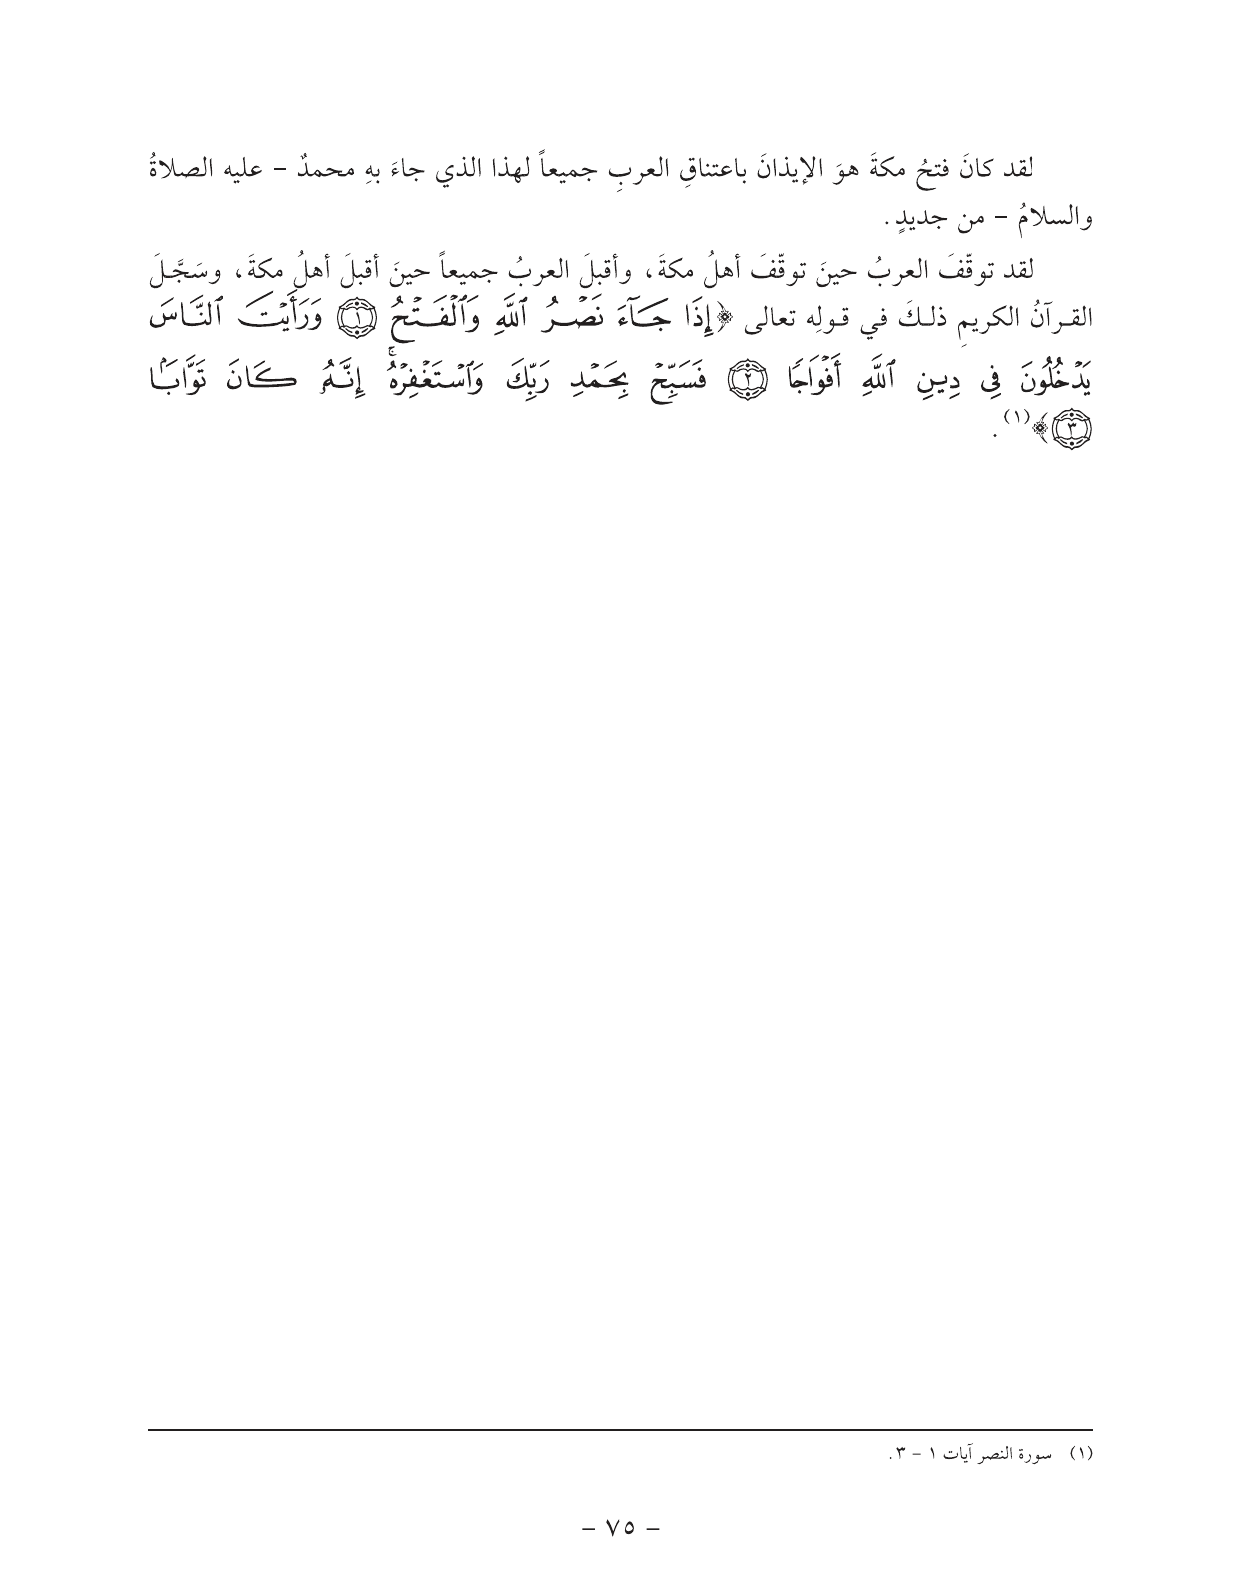 لقد كانَ فتحُ مكةَ هوَ الإيذانَ باعتناقِ العربِ جميعاً لهذا الذي جاءَ بهِ محمدٌ – عليه الصلاةُ
والسلامُ – من جديدٍ.
لقد توقّفَ العربُ حينَ توقّفَ أهلُ مكةَ، وأقبلَ العربُ جميعاً حينَ أقبلَ أهلُ مكةَ، وسَجَّلَ
القرآنُ الكريمِ ذلكَ في قولِه تعالى ﴿إِذَا جَآءَ نَصۡرُ ٱللَّهِ وَٱلۡفَتۡحُ ۝١ وَرَأَيۡتَ ٱلنَّاسَ
يَدۡخُلُونَ فِى دِينِ ٱللَّهِ أَفۡوَاجٗا ۝٢ فَسَبِّحۡ بِحَمۡدِ رَبِّكَ وَٱسۡتَغۡفِرۡهُۚ إِنَّهُۥ كَانَ تَوَّابَۢا
۝٣﴾(١).
(١) سورة النصر آيات ١ – ٣.
– ٧٥ –